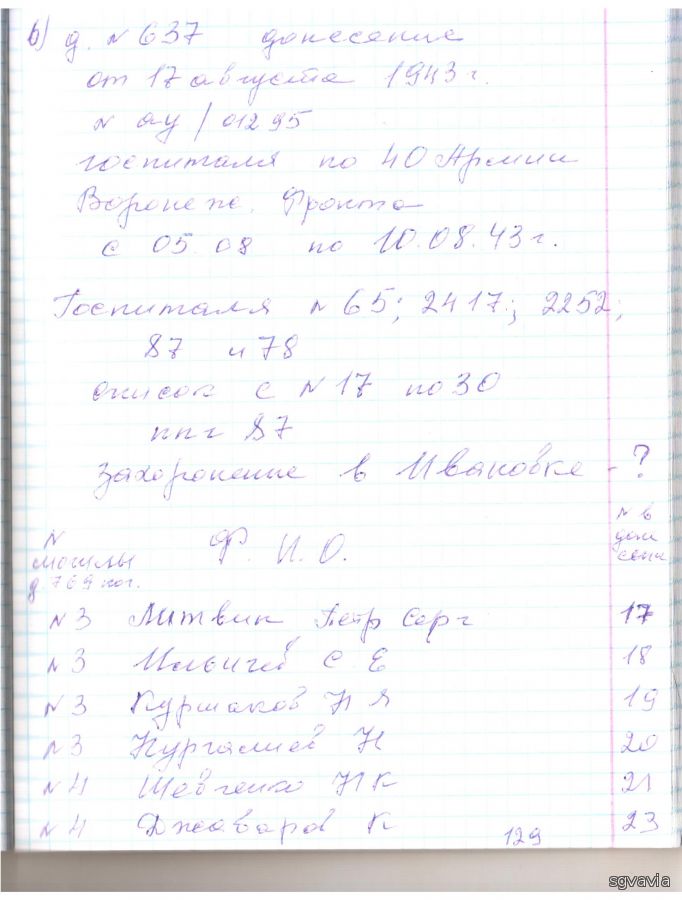 в) д. № 637 донесение
от 17 августа 1943 г.
№ ау/01295
госпиталя по 40 Армии
Воронеж. Фронта
с 05.08 по 10.08.43 г.
Госпиталя № 65; 2417; 2252;
87 и 78
список с № 17 по 30
ппг 87
Захоронение в Ивановке - ?
№ могилы д. 769 ког.
Ф. И. О.
№ в доне сени
№ 3 Литвин Петр Серг 17
№ 3 Ильичев С Е 18
№ 3 Куршаков И Я 19
№ 3 Нургалиев Н 20
№ 4 Шевченко И К 21
№ 4 Джаваров К 23
129
sgvavia